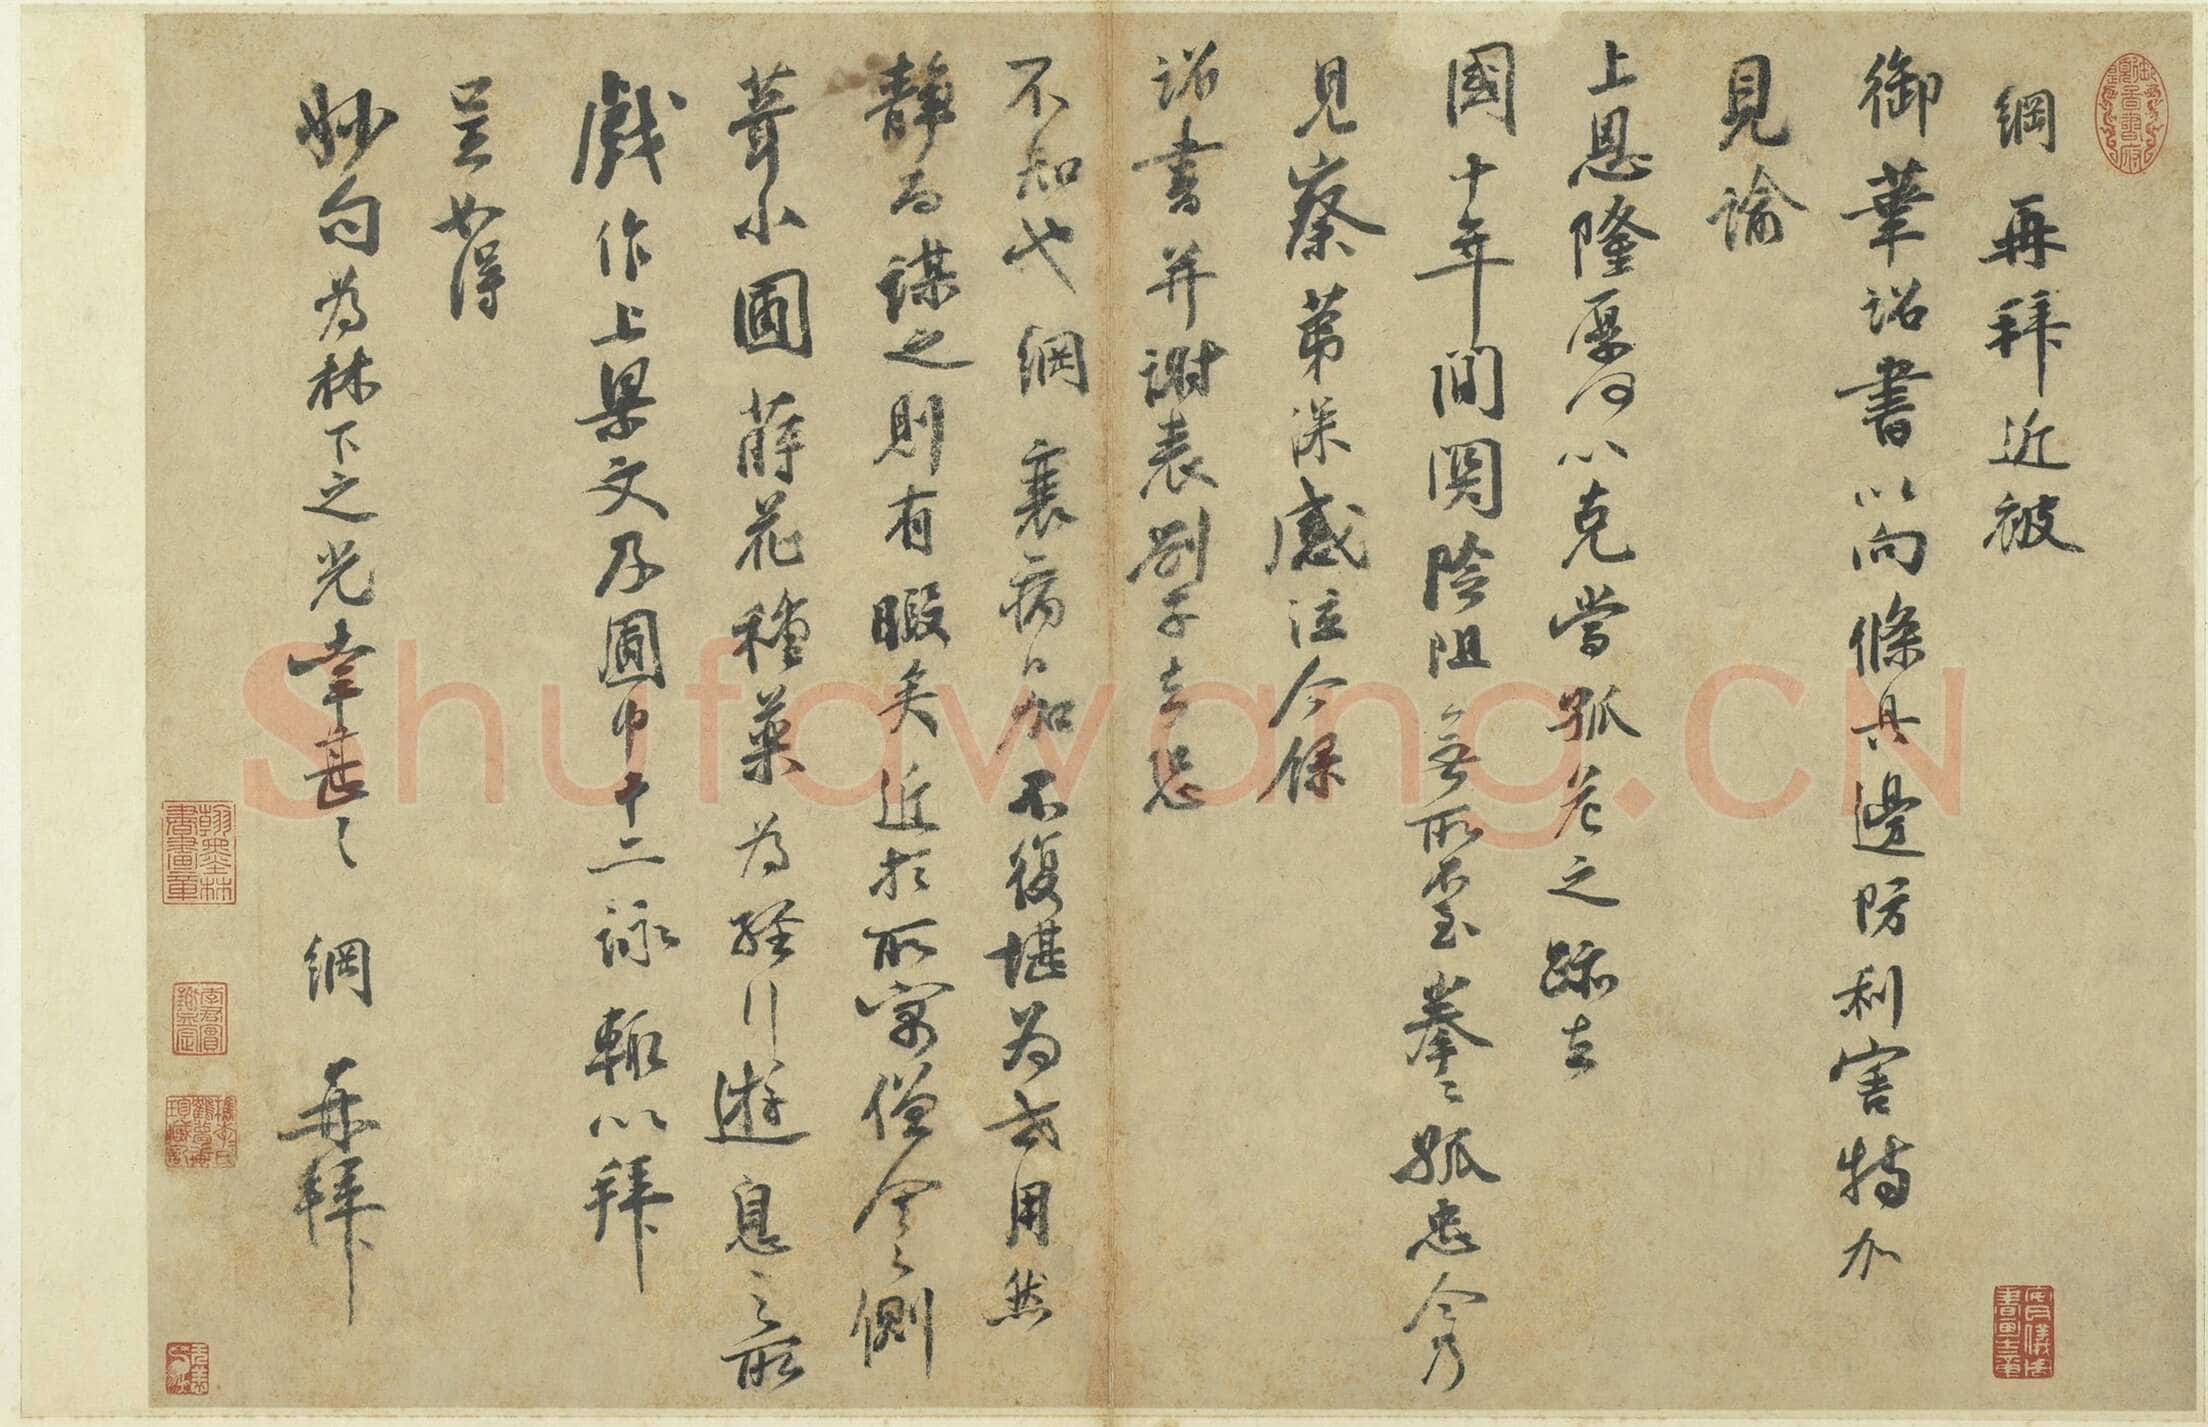 綱再拜近被
御筆詔書以向條具邊防利害特加
見諭
上恩隆厚何以克當孤危之跡去
國十年間関險阻無所不至拳拳孤忠今乃
見察第深感泣今錄
詔書并謝表劄子去恐
不知也綱衰病日加不復堪為世用然
靜為謀之則有暇矣近於所寓僧舍之側
葺小圃蒔花種菜為經行遊息之所
戲作上梁文及圃中十二詠輒以拜
呈如得
妙句為林下之光幸甚甚綱再拜
Shufawang.CN